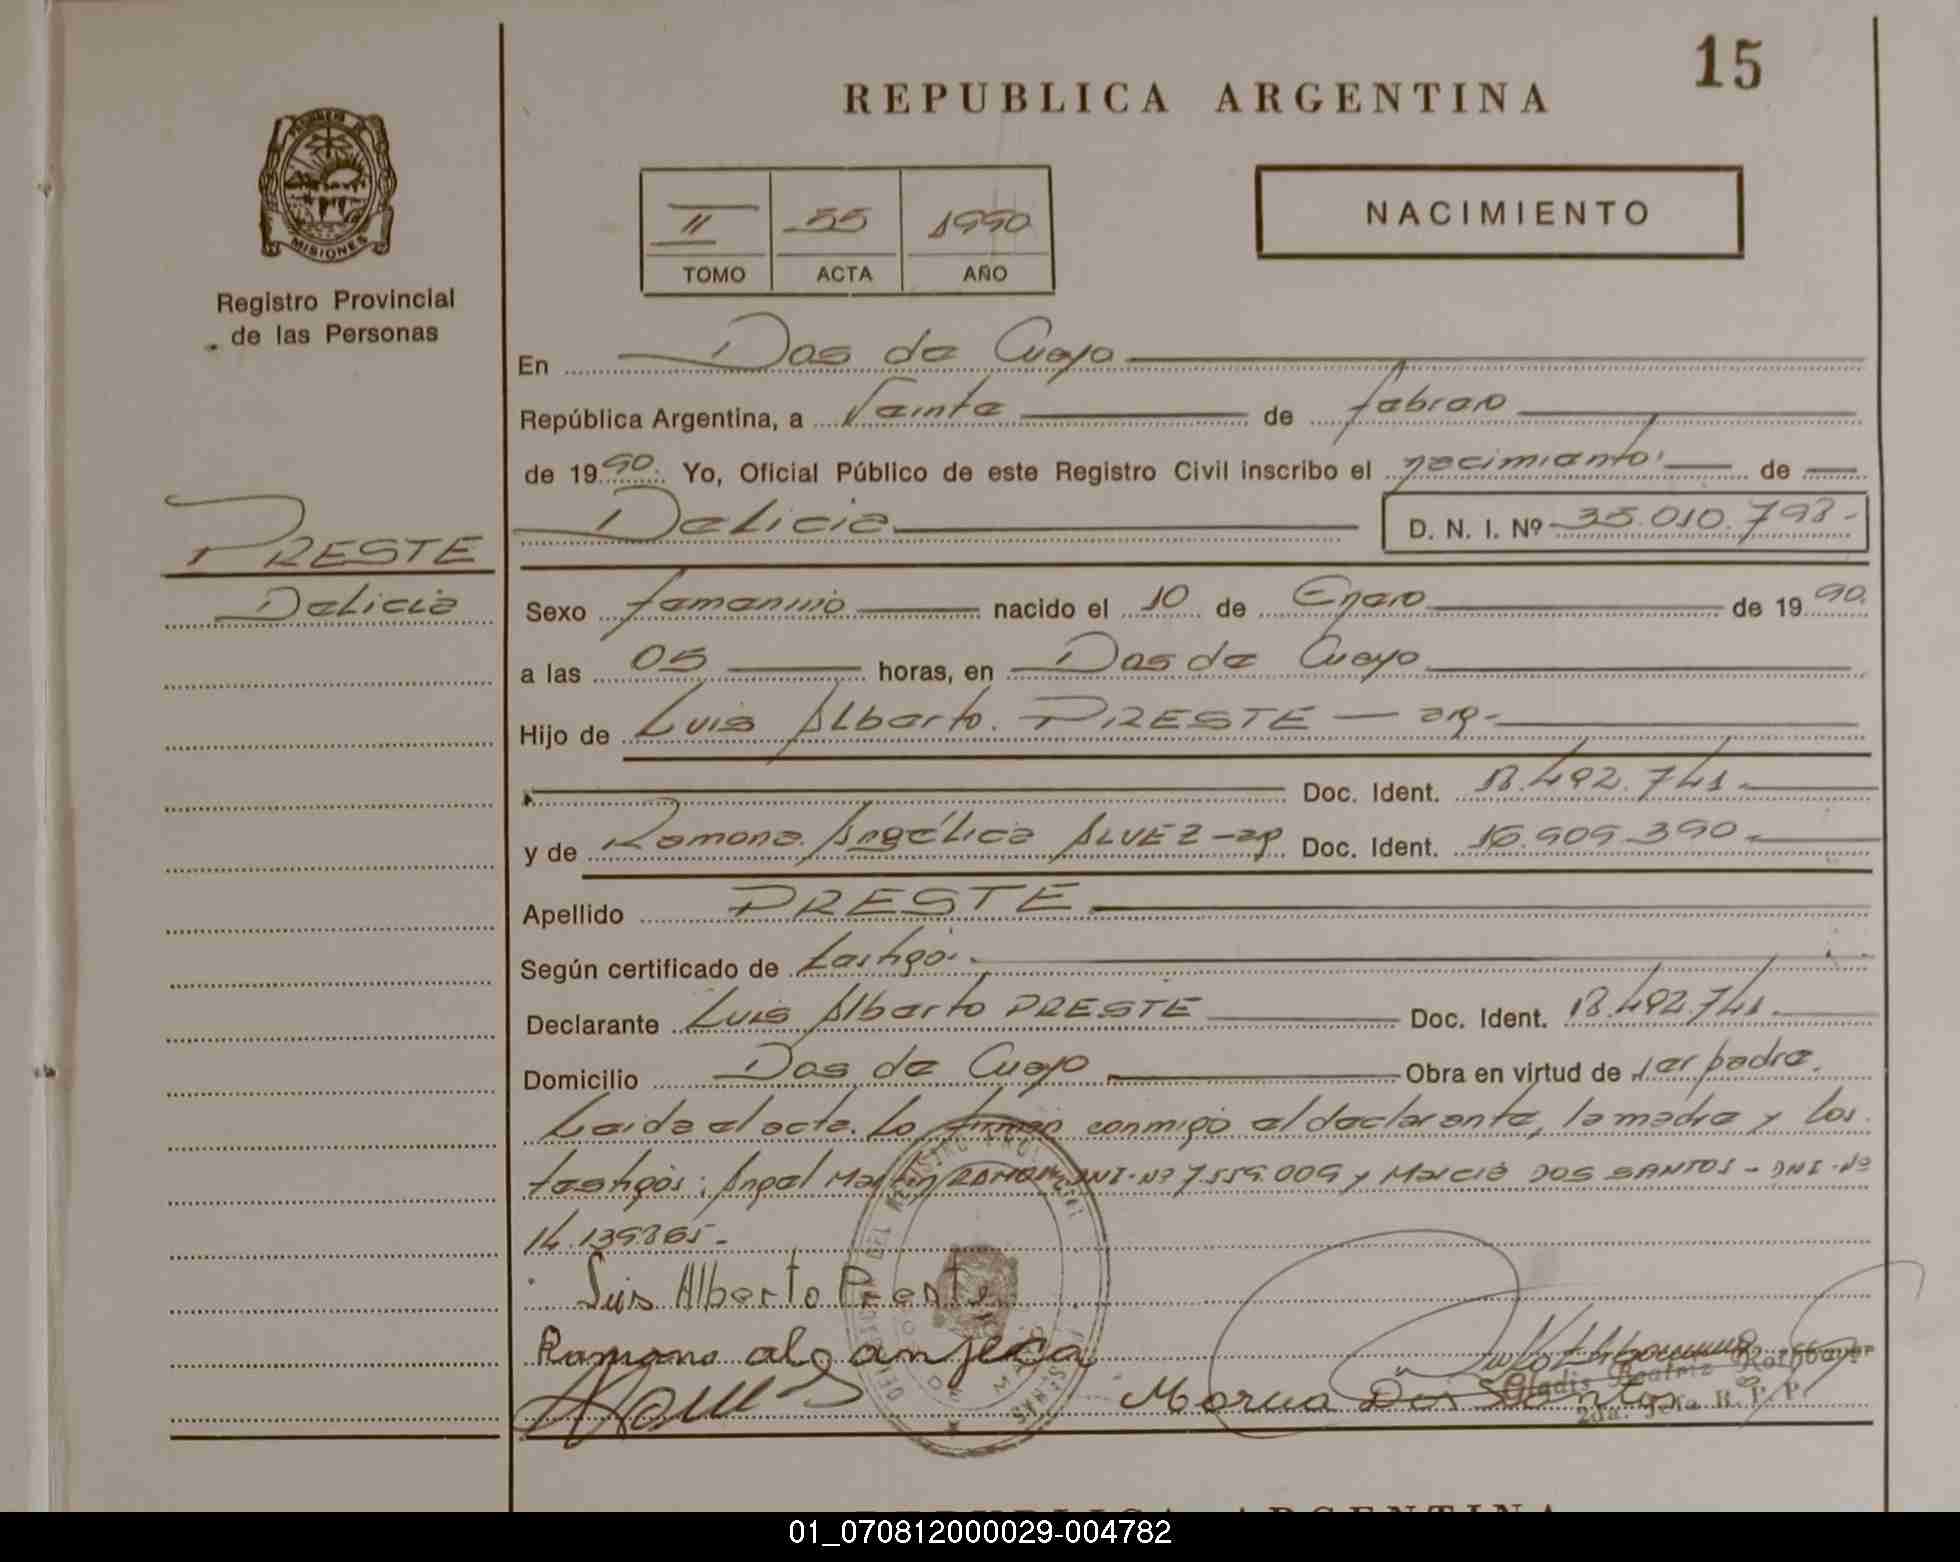 15
REPUBLICA ARGENTINA
PROVINCIA DE
MISIONES
Registro Provincial
de las Personas
II 55 1990
TOMO ACTA AÑO
NACIMIENTO
En Dos de Mayo
República Argentina, a Veinte de febrero
de 1990. Yo, Oficial Público de este Registro Civil inscribo el nacimiento de
Delicia D. N. I. Nº 35.010.798-
PRESTE
Delicia
Sexo femenino nacido el 10 de Enero de 1990.
a las 05 horas, en Dos de Mayo
Hijo de Luis Alberto PRESTE — arg-
Doc. Ident. 18.492.741-
y de Ramona Angélica ALVEZ - ag Doc. Ident. 16.909.390-
Apellido PRESTE
Según certificado de testigos.
Declarante Luis Alberto PRESTE Doc. Ident. 18.492.741.
Domicilio Dos de Mayo Obra en virtud de ser padre.
Leída el acta. Lo firman conmigo el declarante, la madre y los
testigos: Angel Martin RAMOS DNI-Nº 7.559.009 y Marcia DOS SANTOS - DNI-Nº
14.139865-
Luis Alberto Preste
Ramona al anjeca
Dos Santos
Gladis Beatriz Rothbauer
2da. Jefa R. P. P.
01_070812000029-004782